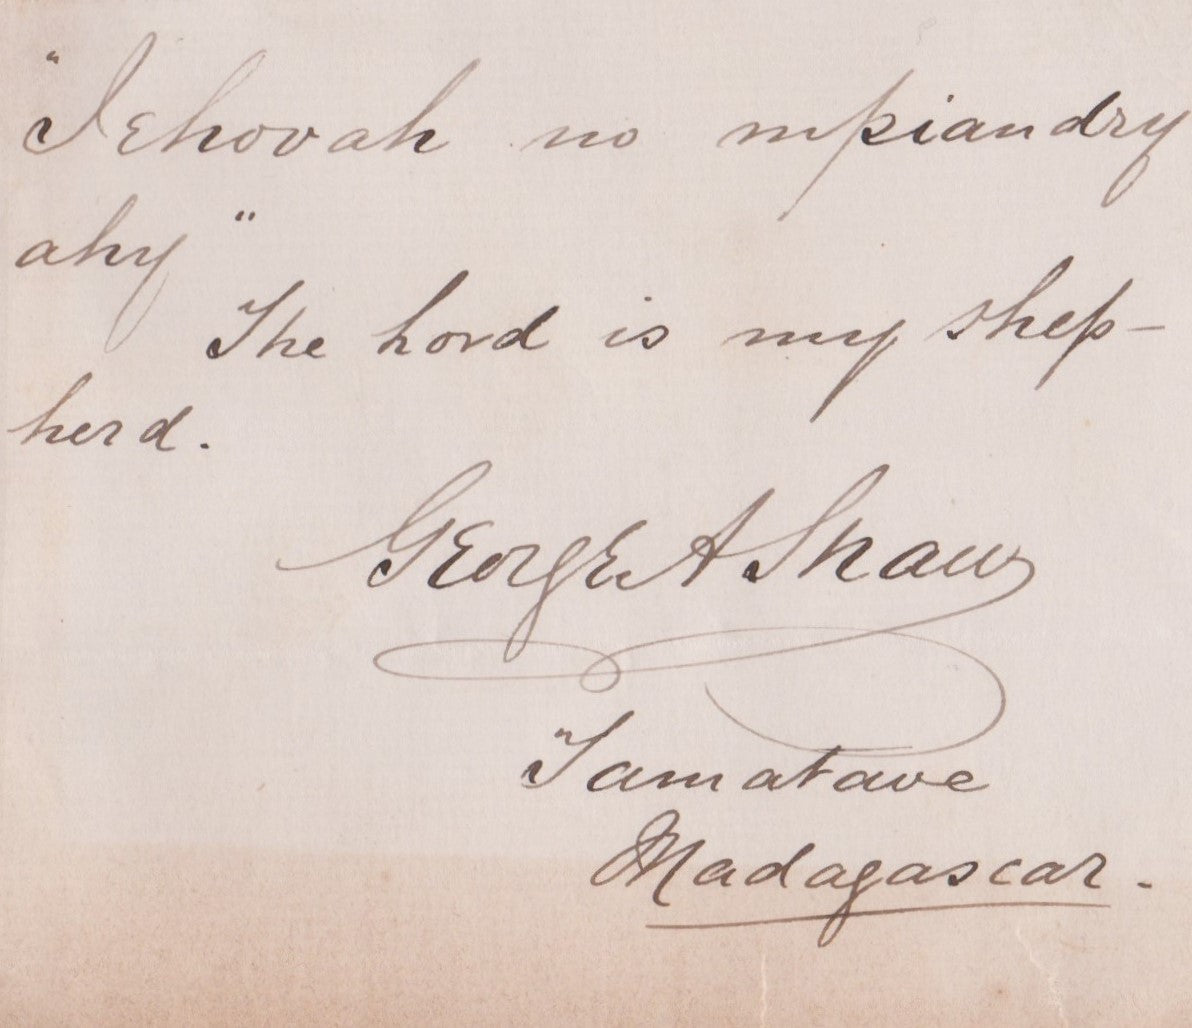 "Jehovah no mpiandry
ahy"
The Lord is my shep-
herd.
George A Shaw
Tamatave
Madagascar.